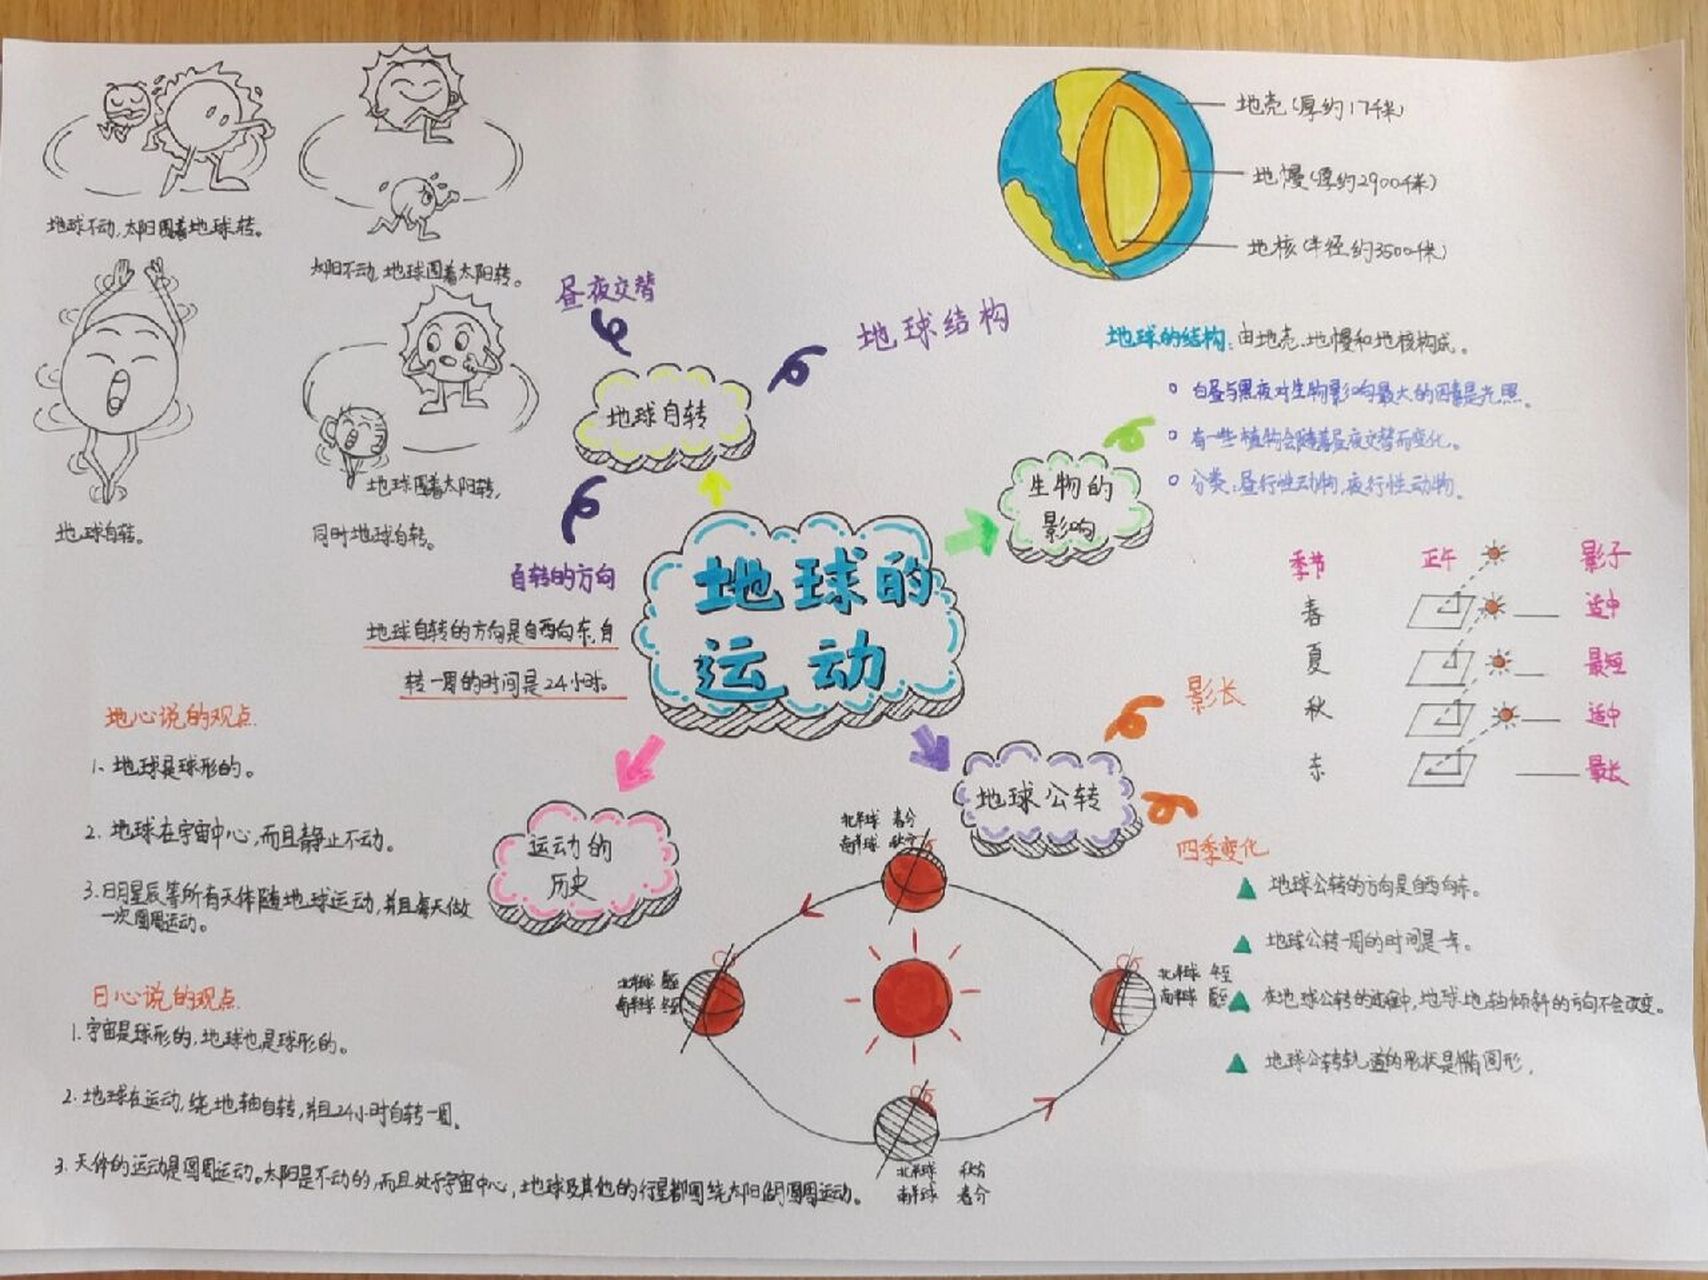 地球不动,太阳围着地球转。
太阳不动,地球围着太阳转。
地球自转。
地球围着太阳转,
同时地球自转。
昼夜交替
地球结构
地球自转
自转的方向
地球自转的方向是自西向东,自
转一周的时间是24小时。
地壳(厚约17千米)
地慢(厚约2900千米)
地核(半径约3500千米)
地球的结构:由地壳、地慢和地核构成。
白昼与黑夜对生物影响最大的因素是光照。
有一些植物会随着昼夜交替而变化。
分类:昼行性动物,夜行性动物。
生物的
影响
地球的
运动
季节 正午 影子
春 适中
夏 最短
秋 适中
冬 最长
影长
地球公转
四季变化
地球公转的方向是自西向东。
地球公转一周的时间是一年。
在地球公转的过程中,地球地轴倾斜的方向不会改变。
地球公转轨道的形状是椭圆形。
运动的
历史
地心说的观点
1. 地球是球形的。
2. 地球在宇宙中心,而且静止不动。
3. 日月星辰等所有天体随地球运动,并且每天做
一次圆周运动。
日心说的观点
1. 宇宙是球形的,地球也是球形的。
2. 地球在运动,绕地轴自转,并且24小时自转一周。
3. 天体的运动是圆周运动。太阳是不动的,而且处于宇宙中心,地球及其他的行星都围绕太阳做圆周运动。
北半球 春分
南半球 秋分
北半球 夏至
南半球 冬至
北半球 冬至
南半球 夏至
北半球 秋分
南半球 春分